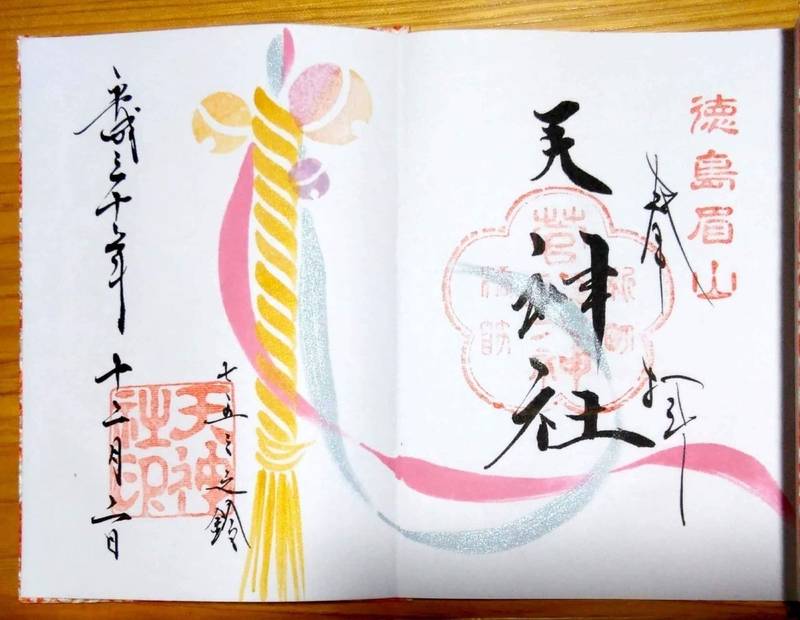 徳島眉山
奉拝
天神社
七五三之鈴
天神
社印
平成三十年十二月二日